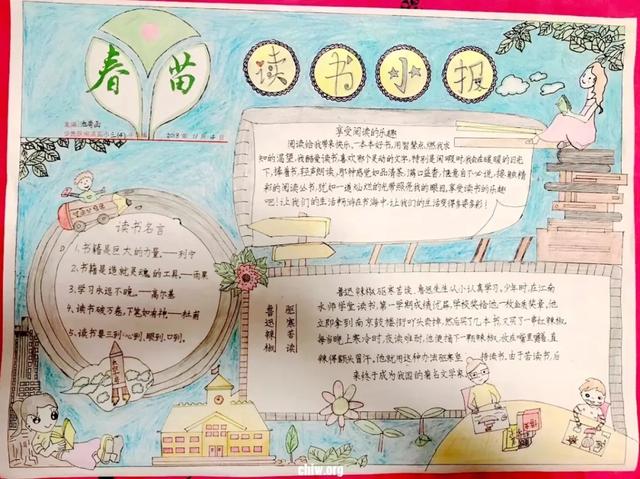 春苗
读书小报
主编
2018年11月4日
享受阅读的乐趣
阅读给我带来快乐，一本本好书，用智慧点燃我求
知的渴望。我酷爱读书，喜欢那个灵动的文字，特别是闲暇时我会在暖暖的日光
下，捧着书，轻声朗读，那种感觉如品清茶，满口益香，惬意自不必说，接触精
彩的阅读丛书，犹如一道灿烂的光带照亮我的眼目，享受读书的乐趣
吧！让我们的生活畅游在书海中，让我们的生活变得多姿多彩！
读书名言
1、书籍是巨大的力量。——列宁
2、书籍是造就灵魂的工具。——雨果
3、学习永远不晚。——高尔基
4、读书破万卷，下笔如有神——杜甫
5、读书要三到：心到，眼到，口到。
鲁迅辣椒
驱寒苦读
鲁迅辣椒驱寒苦读，鲁迅先生从小认真学习。少年时，在江南
水师学堂读书，第一学期成绩优异，学校奖给他一枚金质奖章，他
立即拿到南京鼓楼街头卖掉，然后买了几本书，又买了一串红辣椒。
每当晚上寒冷时，夜读难耐，他便摘下一颗辣椒，放在嘴里嚼着，直
辣得额头冒汗。他就用这种办法驱寒坚持读书，由于苦读书，后
来终于成为我国的著名文学家
chlw.org